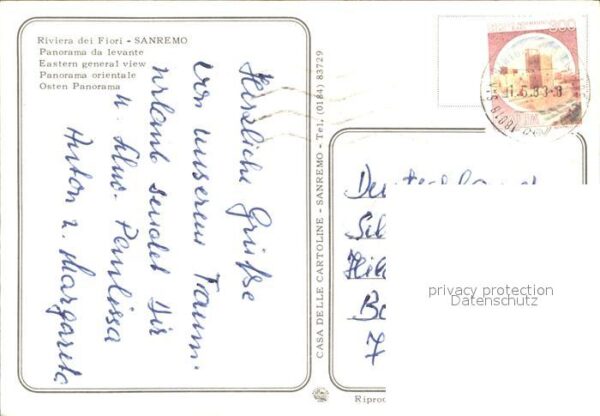 Riviera dei Fiori - SANREMO
Panorama da levante
Eastern general view
Panorama orientale
Osten Panorama
Herzliche Grüße
von unserem Traum-
urlaub sendet Dir
u.
Anton u. Margareta
CASA DELLE CARTOLINE - SANREMO - Tel. (0184) 83729
300
Deutschland
7
privacy protection
Datenschutz
Riproc